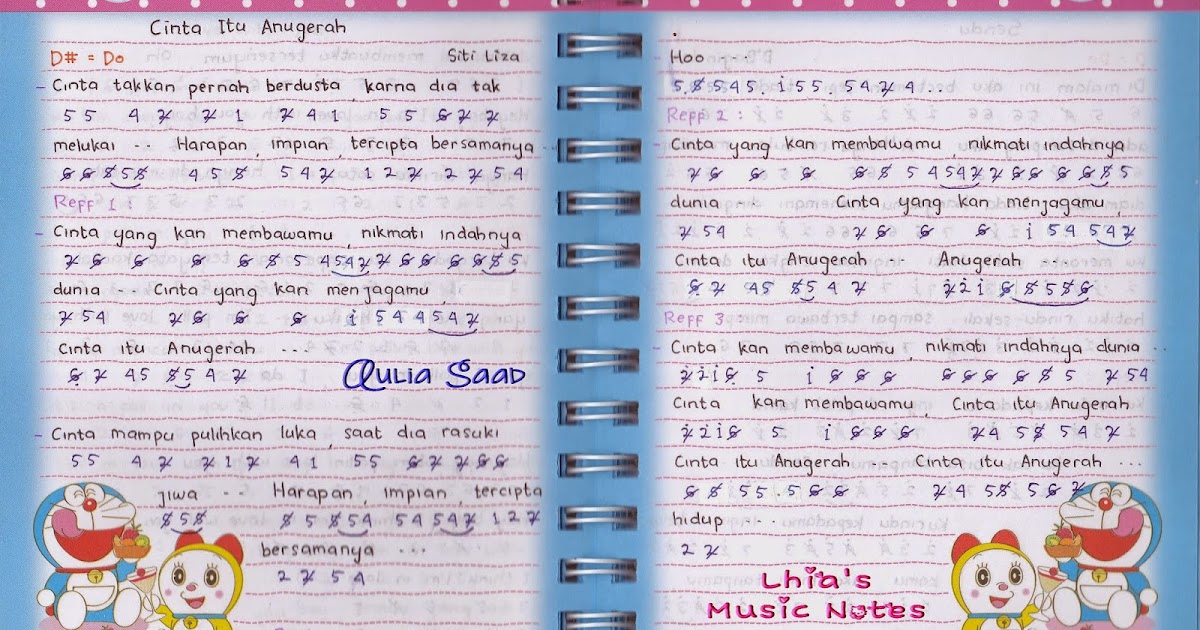 Cinta Itu Anugerah
D# = Do Siti Liza
- Cinta takkan pernah berdusta, karna dia tak
5 5 4 2̸ 2̸ 1 2̸ 4 1 5 5 6̸ 2̸ 2̸
melukai -- Harapan, impian, tercipta bersamanya --
6̸ 6̸ 5̸ 5 5̸ 4 5 5̸ 5 4 2̸ 1 2 2̸ 2 2̸ 5 4
Reff 1 :
- Cinta yang kan membawamu, nikmati indahnya
2̸ 6̸ 6̸ 6̸ 6̸ 5̸ 5 4 5 4 2̸ 2̸ 6̸ 6̸ 6̸ 6̸ 5̸ 5
dunia -- Cinta yang kan menjagamu,
2̸ 5 4 2̸ 6̸ 6̸ 6̸ i 5 4 4 5 4 2̸
Cinta itu Anugerah ---
6̸ 2̸ 4 5 5̸ 5 4 2̸
Qulia Saad
- Cinta mampu pulihkan luka, saat dia rasuki
5 5 4 2̸ 2̸ 1 2̸ 4 1 5 5 6̸ 2̸ 2̸ 6̸ 6̸
jiwa -- Harapan, impian, tercipta
5̸ 5 5̸ 5̸ 5 5̸ 5 4 5 4 5 4 2̸ 1 2 2̸
bersamanya ---
2 2̸ 5 4
- Hoo ---
5 5̸ 5 4 5 . i 5 5 . 5 4 2̸ 4 ...
Reff 2 :
- Cinta yang kan membawamu, nikmati indahnya
2̸ 6̸ 6̸ 6̸ 6̸ 5̸ 5 4 5 4 2̸ 2̸ 6̸ 6̸ 6̸ 6̸ 5̸ 5
dunia -- Cinta yang kan menjagamu,
2̸ 5 4 2̸ 6̸ 6̸ 6̸ i 5 4 5 4 2̸
Cinta itu Anugerah -- Anugerah ---
6̸ 2̸ 4 5 5̸ 5 4 2̸ 2̸ 2 i 6̸ 5̸ 5 5̸ 6̸
Reff 3 :
- Cinta kan membawamu, nikmati indahnya dunia --
2̸ 2 i 6̸ 5 i 6̸ 6̸ 6̸ 6̸ 6̸ 6̸ 6̸ 5̸ 5 2̸ 5 4
Cinta kan membawamu, Cinta itu Anugerah
2̸ 2 i 6̸ 5 i 6̸ 6̸ 6̸ 2̸ 4 5 5̸ 5 4 2̸
Cinta itu Anugerah -- Cinta itu Anugerah ---
6̸ 5̸ 5 5 . 5 6̸ 6̸ 2̸ 4 5 5̸ 5 6̸ 2̸
hidup ---
2 2̸
Lhia's
Music Notes